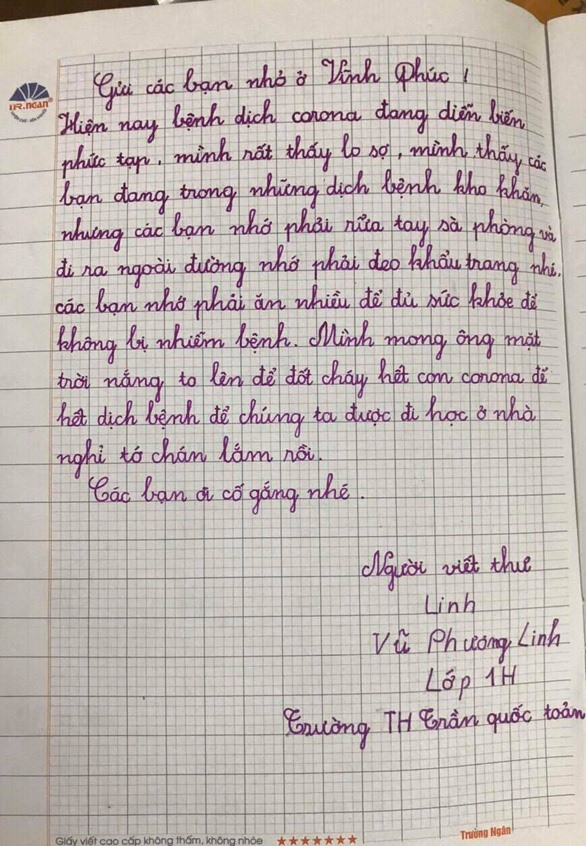 TR.NGAN
Gửi các bạn nhỏ ở Vĩnh Phúc !
Hiện nay bệnh dịch corona đang diễn biến
phức tạp, mình rất thấy lo sợ, mình thấy các
bạn đang trong những dịch bệnh kho khăn,
nhưng các bạn nhớ phải rữa tay sà phòng và
đi ra ngoài đường nhớ phải đeo khẩu trang nhé,
các bạn nhớ phải ăn nhiều để đủ sức khỏe để
không bị nhiễm bệnh. Mình mong ông mặt
trời nắng to lên để đốt cháy hết con corona để
hết dịch bệnh để chúng ta được đi học ở nhà
nghỉ tớ chán lắm rồi.
Các bạn ơi cố gắng nhé.
Người viết thư
Linh
Vũ Phương Linh
Lớp 1H
Trường TH Trần quốc toản
Giấy viết cao cấp không thấm, không nhòe ★★★★★★★ Trường Ngân